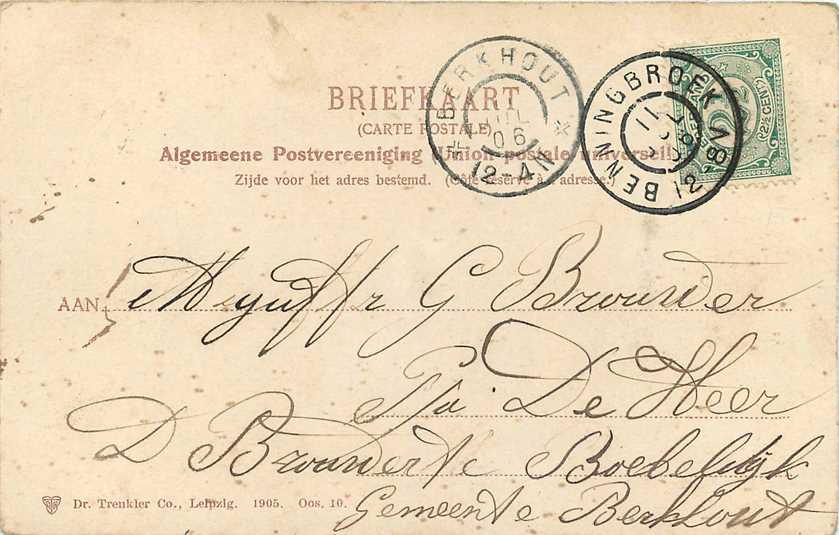 BRIEFKAART
(CARTE POSTALE)
Algemeene Postvereeniging (Union postale universelle)
Zijde voor het adres bestemd. (Côté réservé à l'adresse.)
BERKHOUT
JUL
06
12-4N
BENNINGBROEK
11
AAN
Mejuffr G Brouwer
Pa De Heer
D Brouwer te Bobeldijk
Gemeente Berkhout
Dr. Trenkler Co., Leipzig. 1905. Oos. 10.